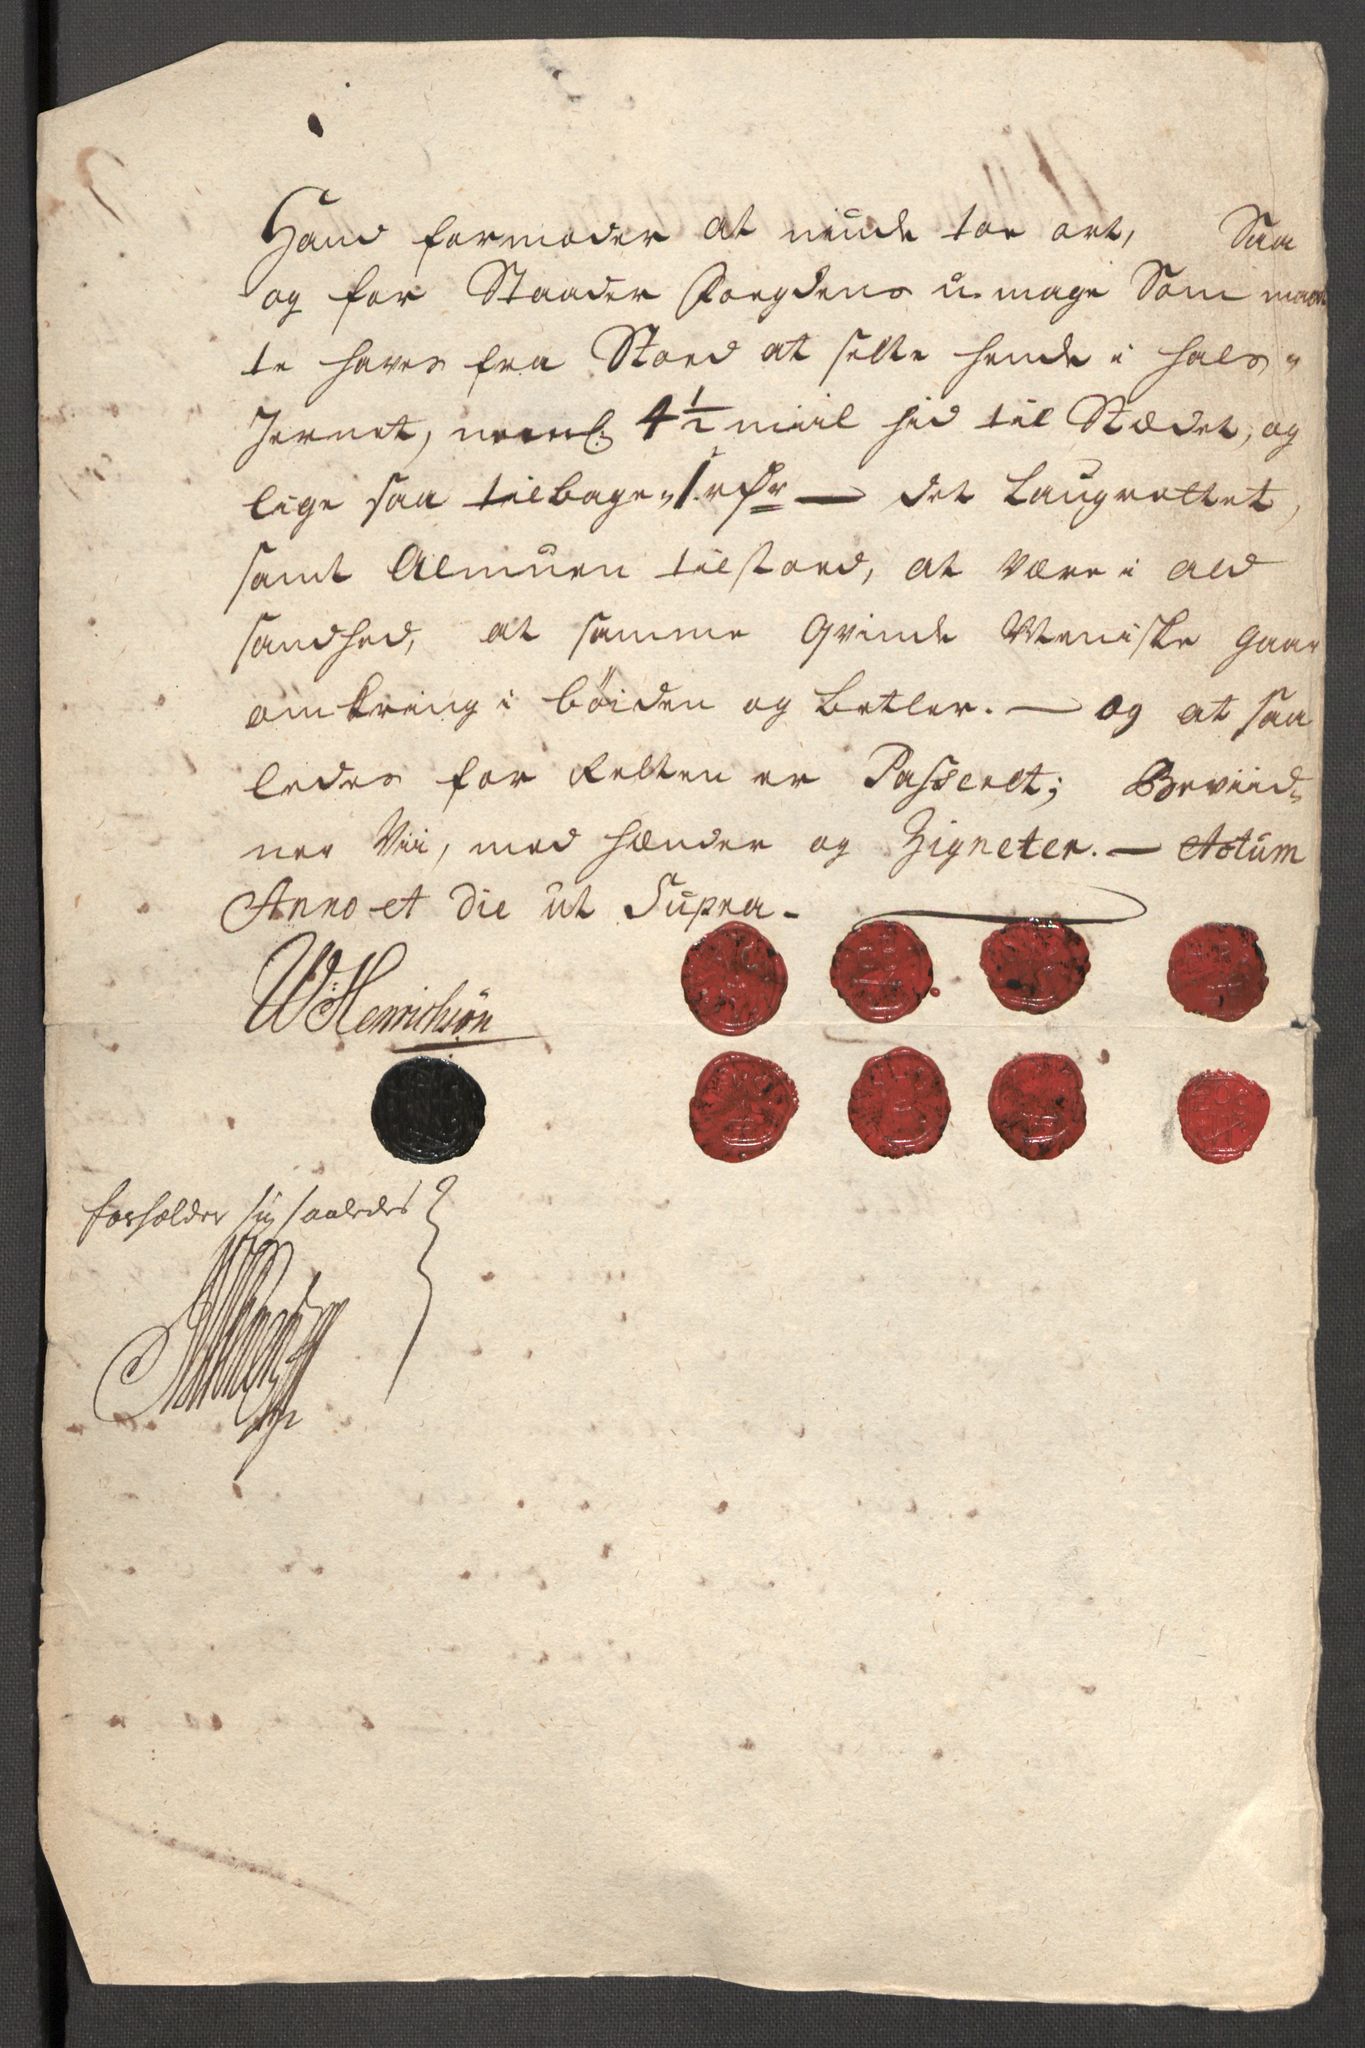 Hand formoder at niude toe ort, Saa
og for Staader Foegdens u-mage Som maat
te haves fra Stoed at sette hende i hals-
Jernet, nemL: 4½ miil hid til Stædet, og
lige saa tilbage, 1 rdr — det Laugrettet,
samt Almuen tilstoed, at være i ald
sandhed, at samme Qvinde Meniske gaar
omkring i böiden og betler. — og at saa
ledes for Retten er Passeret; Beviid-
ner Vii, med hænder og Zigneter. — Actum
Anno et die ut Supra.
W Henrichsøn
forholder sig saaledes